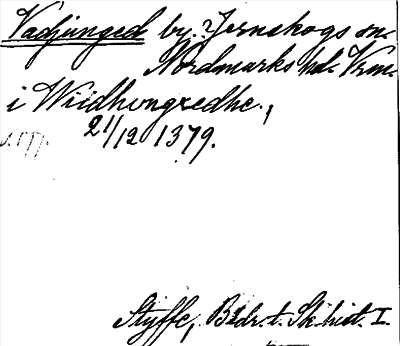 Vadjunged by. Jernskogs sn.
Nordmarks hd. Vrm.
i Wiidhongredhe,
21/12 1379.
Styffe, Bidr. t. Sk. hist. I.